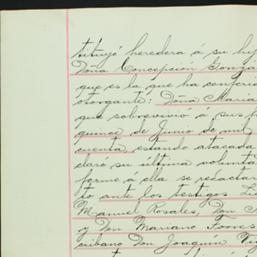 tituyó heredera á su hij
Doña Concepcion Gonza
que es la que ha conferi
otorgante: Doña Maria
que sobrevivió á sus
quince de Junio de mil
cuenta estando atacada
claró su última volunta
forme á ella se redactar
to ante los testigos
Manuel Rosales, Don
y Don Mariano Torres
cribano Don Joaquin